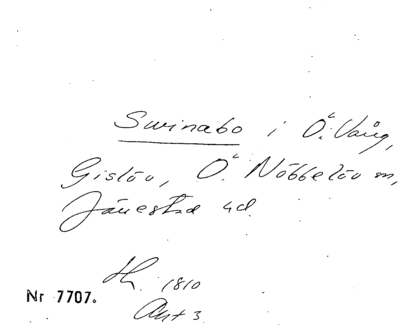 Swinabo i Ö. Vång,
Gislöv, Ö. Nöbbelöv m,
Järrestad hd.
Hh. 1810
Akt 3
Nr 7707.